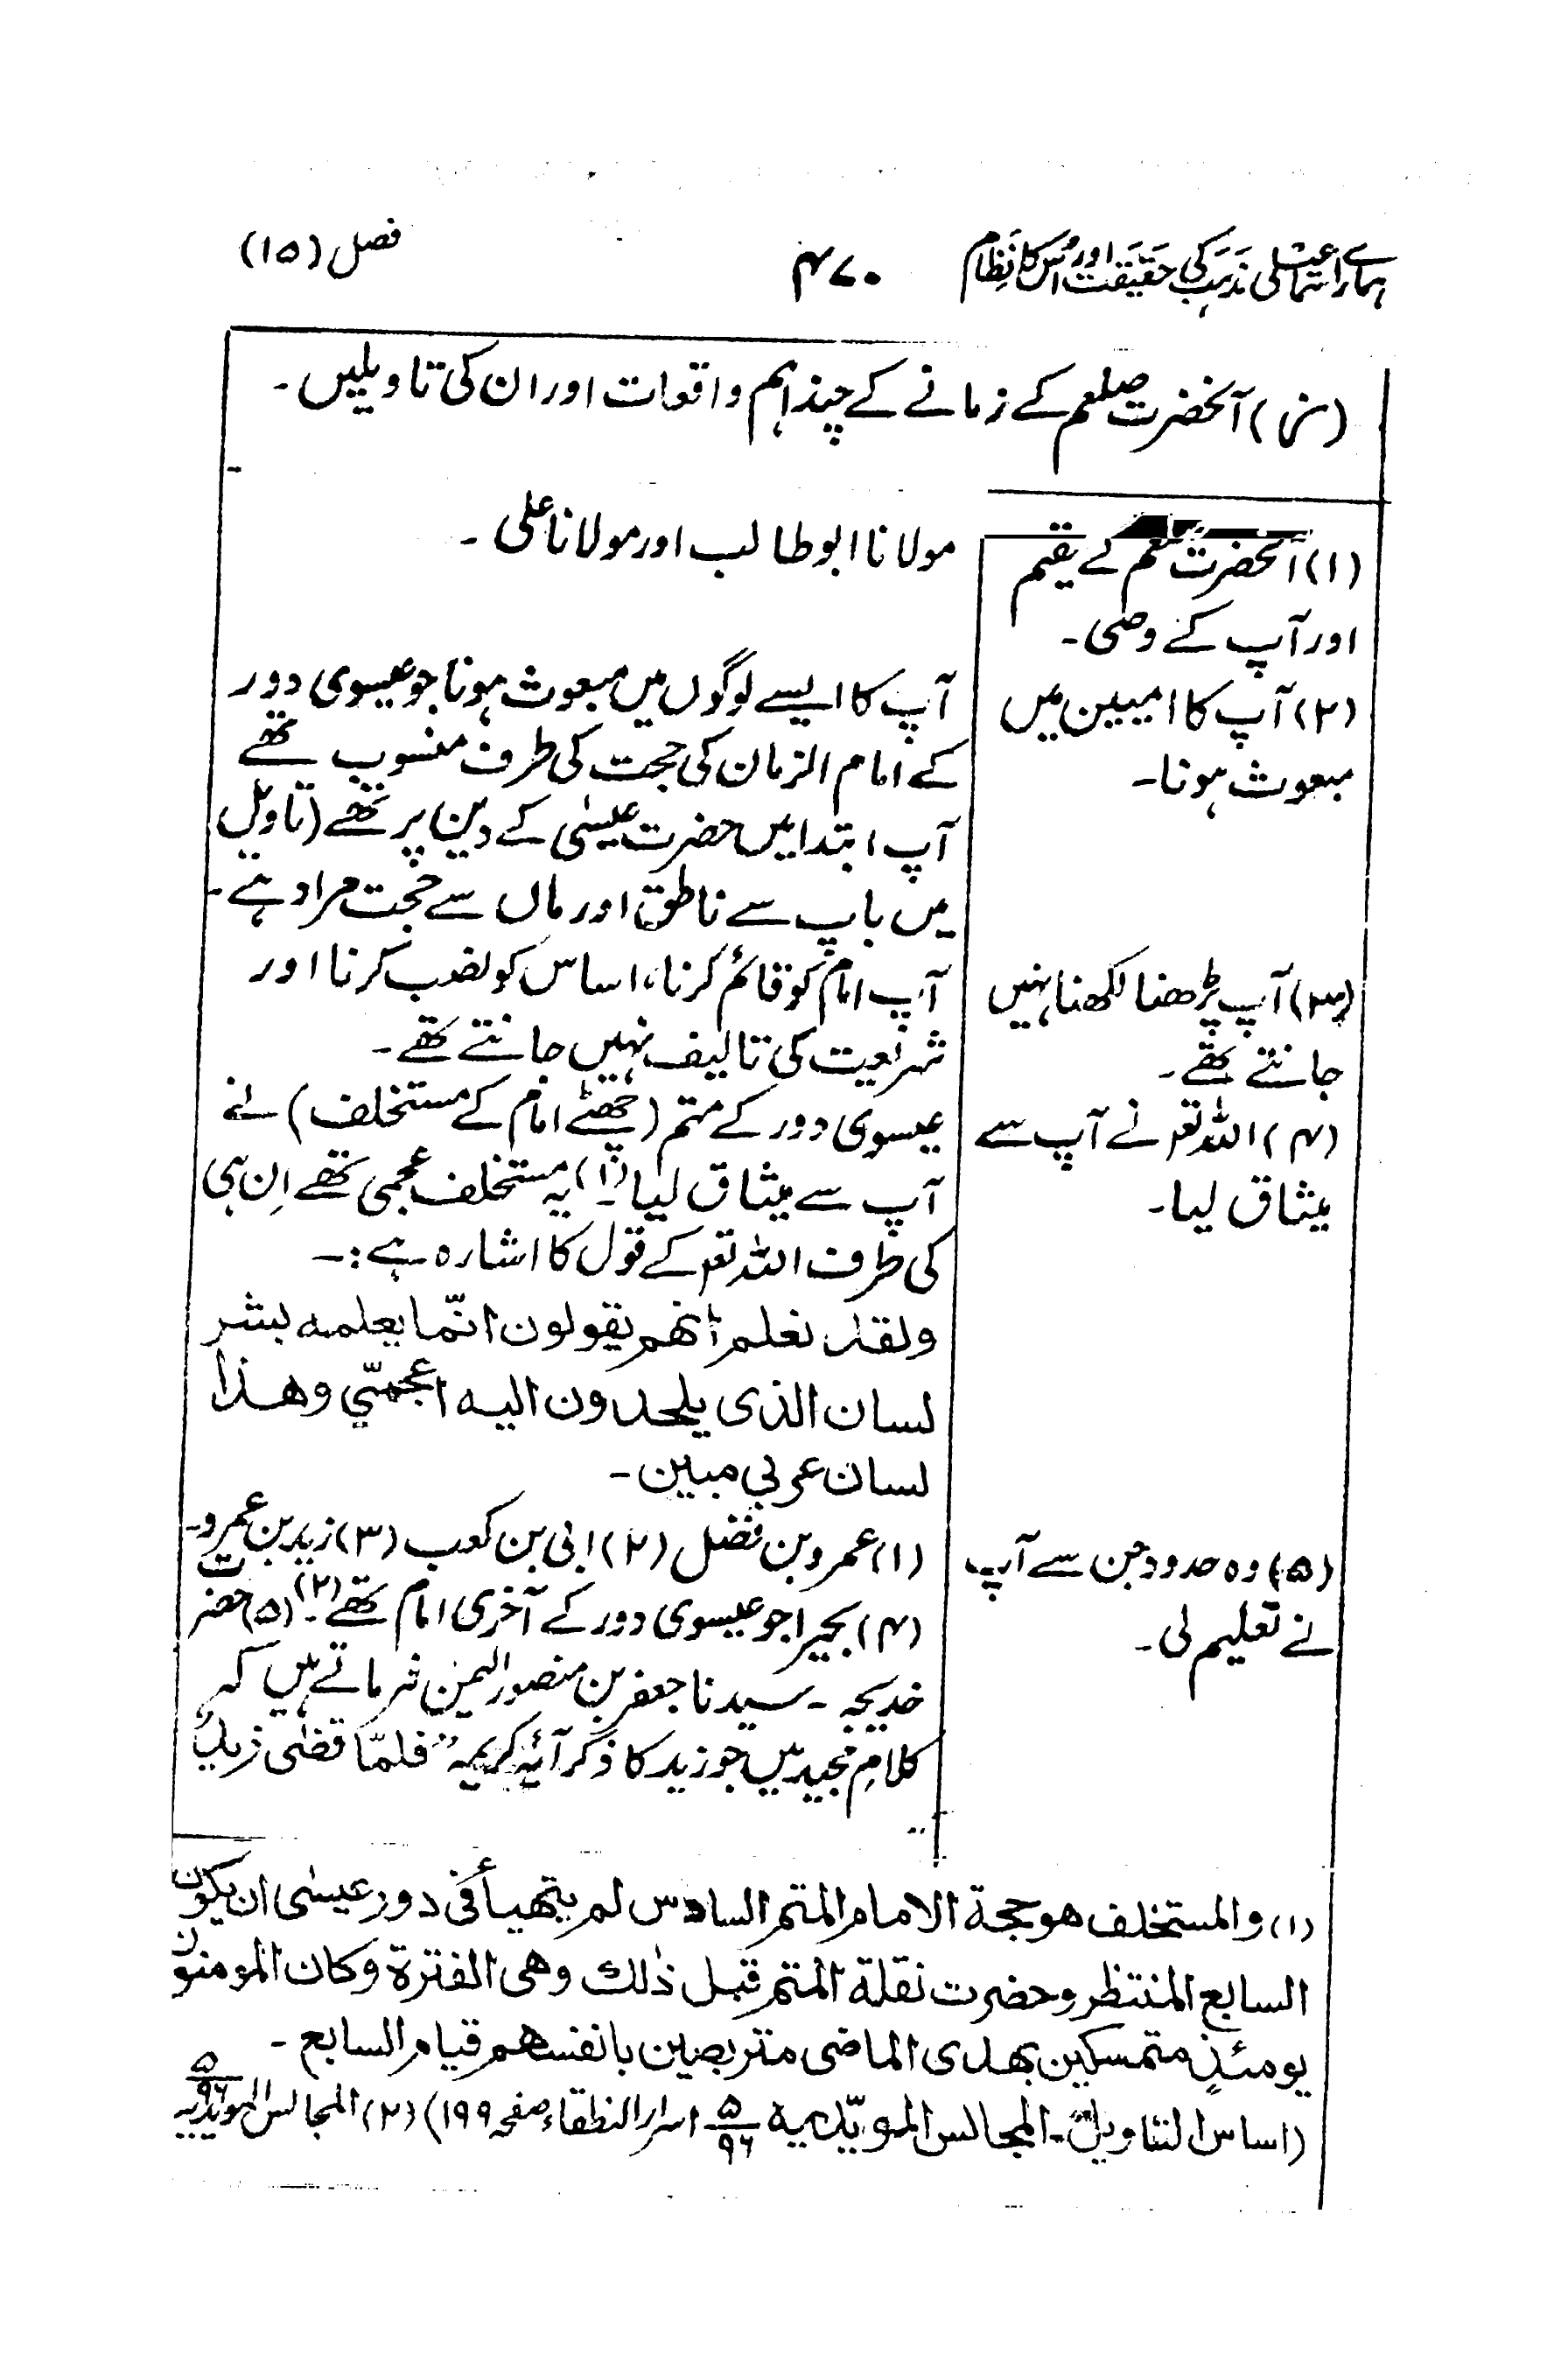 ہمارے اسماعیلی مذہب کی حقیقت اور اُس کا نظام
۴۷۰
فصل (۱۵)
(ز) آنحضرت صلعم کے زمانے کے چند اہم واقعات اور ان کی تاویلیں۔
(۱) آنحضرت صلعم کے یقیم
اور آپ کے وصی۔
مولانا ابو طالب اور مولانا علی۔
(۲) آپ کا امیین میں
مبعوث ہونا۔
آپ کا ایسے لوگوں میں مبعوث ہونا جو عیسوی دور
کے امام الزمان کی حجت کی طرف منسوب تھے
آپ ابتدا میں حضرت عیسٰی کے دین پر تھے (تاویل
میں باپ سے ناطق اور ماں سے حجت مراد ہے۔
(۳) آپ پڑھنا لکھنا نہیں
جانتے تھے۔
آپ امام کو قائم کرنا، اساس کو نصب کرنا اور
شریعت کی تالیف نہیں جانتے تھے۔
(۴) اللہ تعہ نے آپ سے
میثاق لیا۔
عیسوی دور کے متم (چھٹے امام کے مستخلف) نے
آپ سے میثاق لیا۔(۱) یہ مستخلف عجمی تھے اِن ہی
کی طرف اللہ تعہ کے قول کا اشارہ ہے:۔
ولقد نعلم انھم یقولون انّما یعلمہ بشر
لسان الذی یلحدون الیہ اعجمیّ وھذا
لسان عربي مبین۔
(۵) وہ حدود جن سے آپ
نے تعلیم لی۔
(۱) عمرو بن نفضل (۲) ابی بن کعب (۳) زید بن عمرو۔
(۴) بحیرا جو عیسوی دور کے آخری امام تھے۔(۲) (۵) حضرت
خدیجہ۔ سیدنا جعفر بن منصور الیمن فرماتے ہیں کہ
کلامِ مجید میں جو زید کا ذکر آیۂ کریمہ "فلمّا قضٰی زیدٌ
(۱) والمستخلف ھو حجة الامام المتم السادس لم یتھیأ فی دور عیسٰی ان یکون
السابع المنتظر وحضرت نقلة المتم قبل ذٰلك وھی الفترة وکان المومنون
یومئذٍ متمسکین بھدی الماضی متربصین بانفسھم قیام السابع۔
(اساس التاویل۔ المجالس المویّدیہ ۵/۹۶ اسرار النطقاء صفحہ ۱۹۹) (۲) المجالس المویدیہ ۵/۹۶